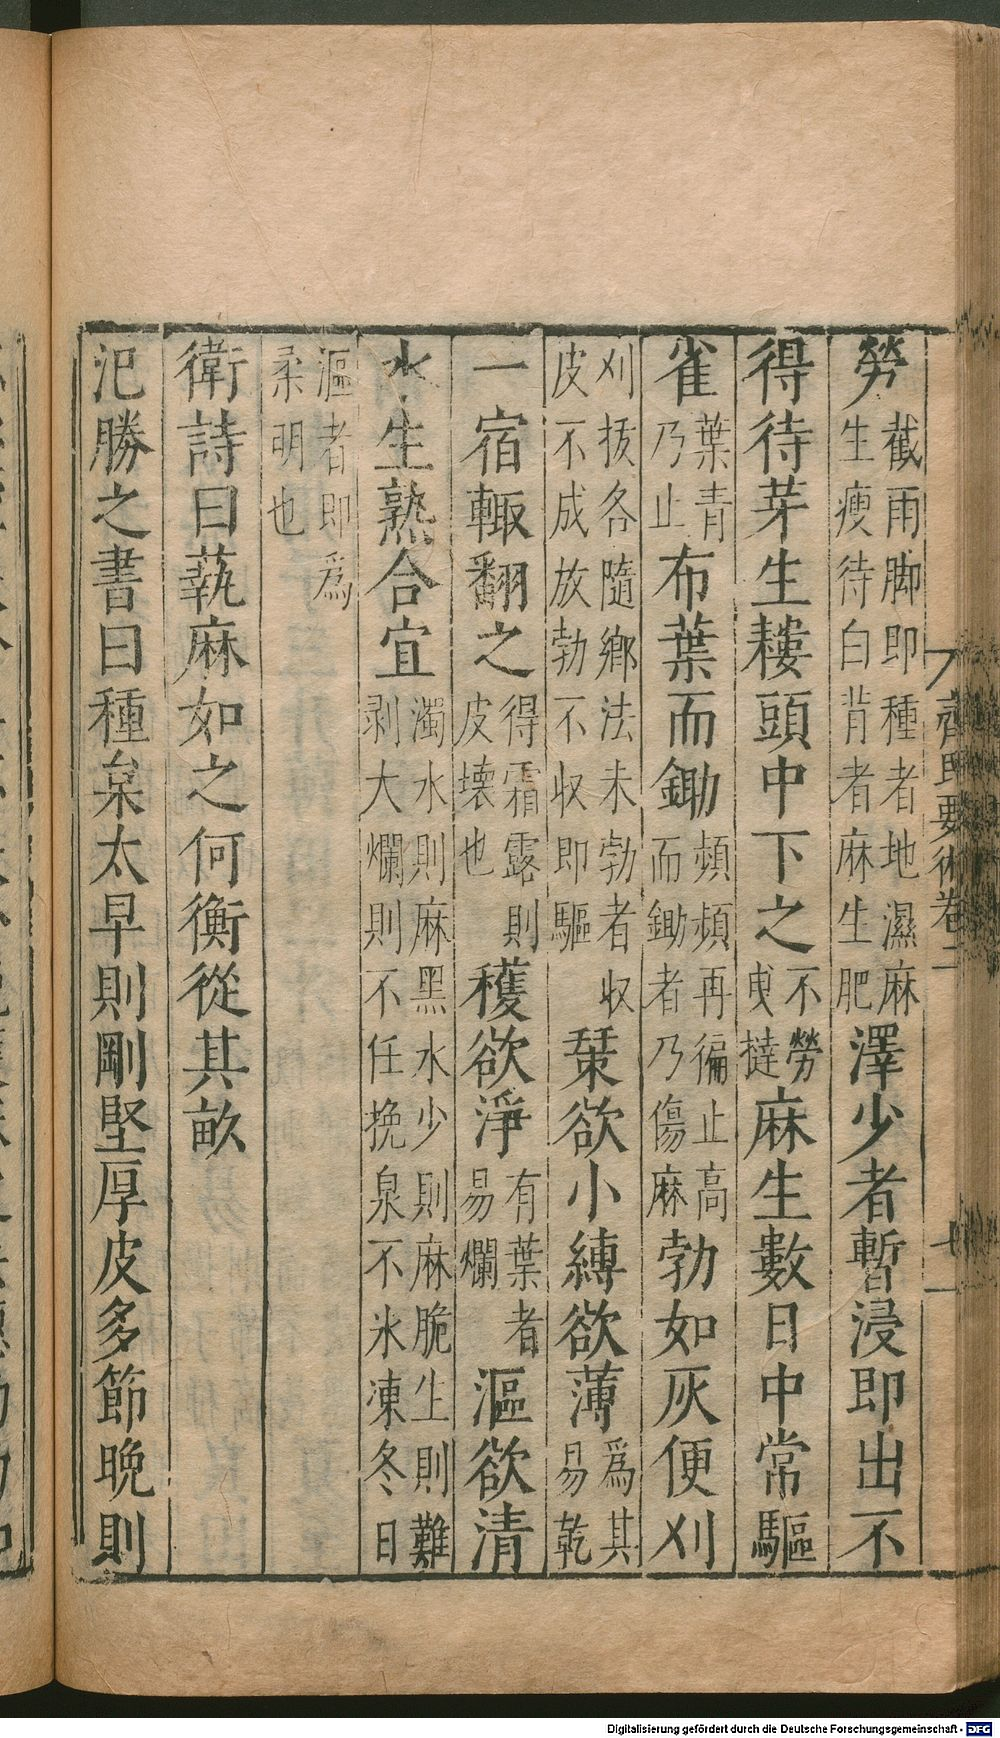 勞截雨脚即種者地濕麻生瘦待白背者麻生肥澤少者暫浸即出不
得待芽生耬頭中下之不勞曳撻麻生數日中常驅
雀葉青乃止布葉而鋤頻頻再徧止高而鋤者乃傷麻勃如灰便刈
刈拔各隨鄉法未勃者收皮不成放勃不收即驪𣓨欲小縛欲薄為其易乾
一宿輙翻之得霜露則皮壊也穫欲淨有葉者易爛漚欲清
水生熟合宜濁水則麻黑水少則麻脆生則難剥大爛則不任挽泉不氷凍冬日
漚者即為柔明也
衛詩曰蓺麻如之何衡從其畝
氾勝之書曰種枲太早則剛堅厚皮多節晚則
齊民要術卷二
十一
Digitalisierung gefördert durch die Deutsche Forschungsgemeinschaft - DFG